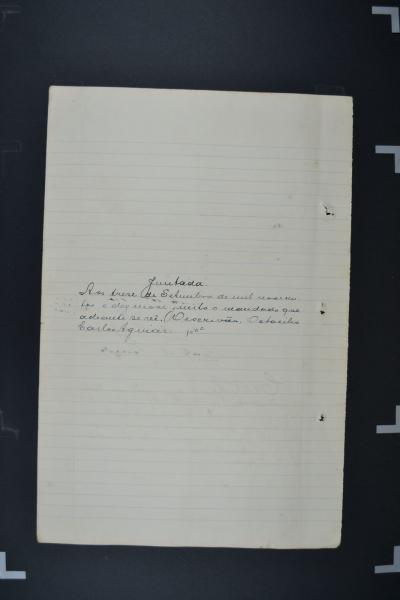 Juntada.
Aos treze de Setembro de mil novecen-
tos e dezenove, junto o mandado que
adiante se vê. O escrivão, Octavilio
Carlos Aguiar.